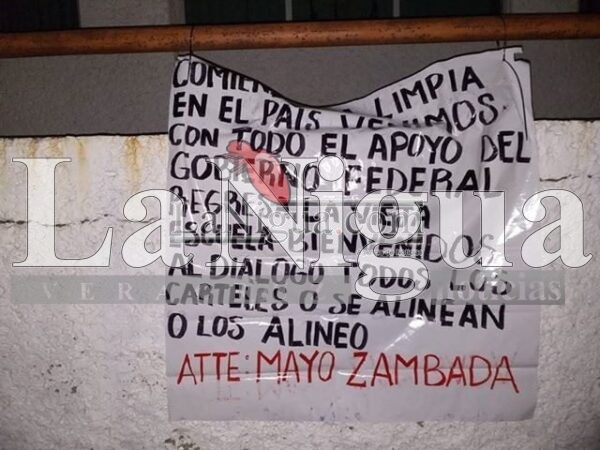 LIMPIA
EN EL PAÍS VENIMOS
CON TODO EL APOYO DEL
GOBIERNO FEDERAL
LA
ESCUELA BIENVENIDOS
AL DIALOGO TODOS LOS
CARTELES O SE ALINEAN
O LOS ALINEO
ATTE: MAYO ZAMBADA
LaNigua